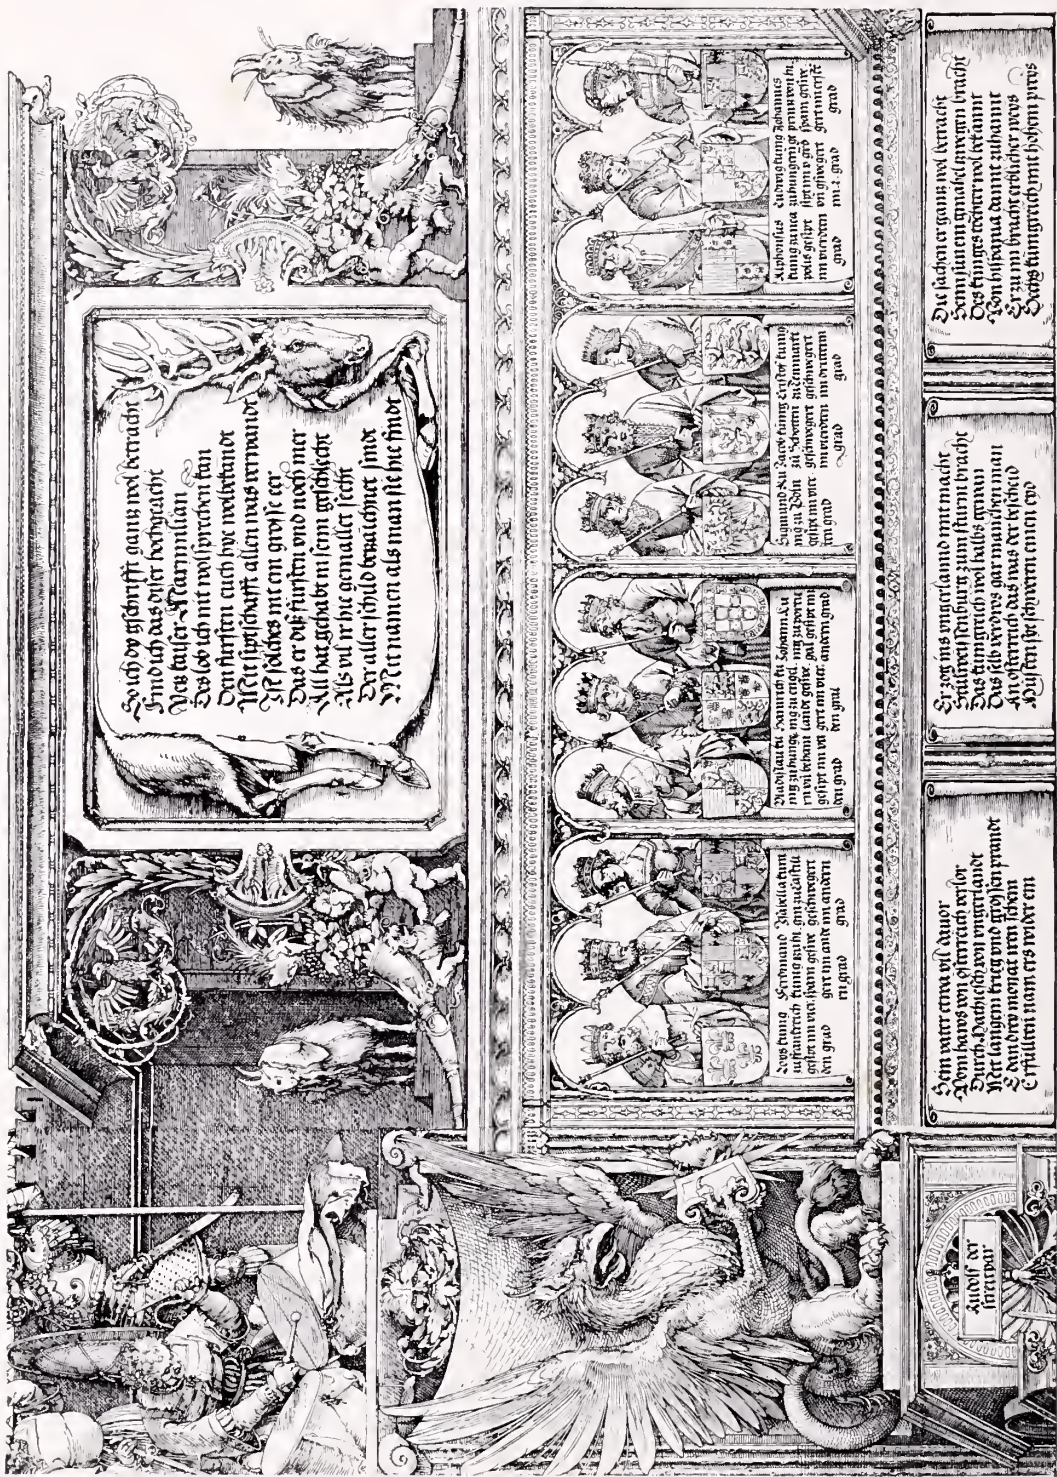 So ich dy gschrifft gantz wol betracht
Find ich das diser hochgeacht
Der kaiser Maximilian
Des lob ich nit wol sprechen kan
Den fursten euch hye wolbekandt
Mit siptschafft allen was verwandt
Ist solches nit ein grosse eer
Das er diß fursten vnd noch mer
All hat gehabt in seim geschlecht
Als vil ir hie gemallet secht
Der aller schild bezaichnet sindt
Mit namen als man sie hie findt
kunig
in franckreich
grad
Ferdinand
kunig
grad
andern
grad
Vladislau ku
nig zu hunge
rn vnd behem
gesipt im vi
den grad
Hainrich ku
nig zu engel
landt geschwe
gert im vier
den grad
Johann ku
nig zu porti
gal gesipt im
andern grad
Sigmund ku
nig zu Poln
gesipt im vier
ten grad
Jacob kunig
zu Schotten
geschwegert
im vierden
grad
Cristof kunig
zu Tenmarkt
geschwegert
im dritten
grad
Alphonsus
kunig zu nea
polis gesipt
im vierden
grad
Ludwig kunig
zu hungern ge
sipt im 2 grad
vnd gschwegert
im 2 grad
Johannes
printz von hi
span geschwe
gert im erste
grad
Seim vater etwas vil dauor
Vom haws von osterreich verlor
Durch Mathiasch von vngerlandt
Mit langem krieg vnd grossem prandt
E dan drey monat iren schein
Erfullten nam ers wider ein
Er zog ins vngerland mit macht
Stulweissenburg zum sturm bracht
Das kungreich wol halbs gewan
Das selb verdros gar manchen man
An osterreich das was der bscheid
Musten sy schweren einen eyd
Die sachen er gantz wol betracht
Seim sun ein gmahel zwegen bracht
Des kunges tochter wol bekannt
Von hispania damit zuhannt
Er zu im bracht erblicher weys
Sechs kungreich mit hohem preys
Rudolf der
streitpar